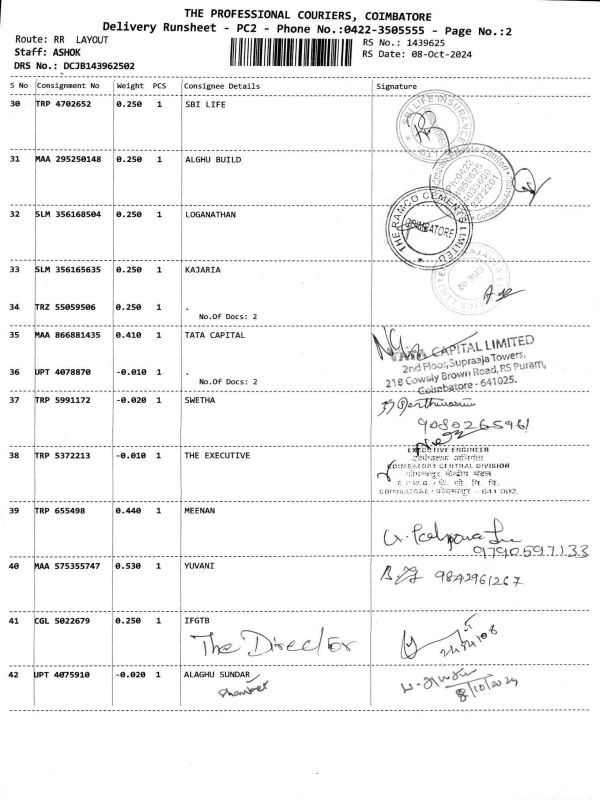 THE PROFESSIONAL COURIERS, COIMBATORE
Delivery Runsheet - PC2 - Phone No.:0422-3505555 - Page No.:2
Route: RR LAYOUT
Staff: ASHOK
DRS No.: DCJB143962502
RS No.: 1439625
RS Date: 08-Oct-2024
S No Consignment No Weight PCS Consignee Details Signature
30 TRP 4702652 0.250 1 SBI LIFE
SBI LIFE INSURANCE
31 MAA 295250148 0.250 1 ALGHU BUILD
32 SLM 356168504 0.250 1 LOGANATHAN
THE RAMCO CEMENTS LIMITED
COIMBATORE
33 SLM 356165635 0.250 1 KAJARIA
34 TRZ 55059506 0.250 1 .
No.Of Docs: 2
35 MAA 866881435 0.410 1 TATA CAPITAL
TATA CAPITAL LIMITED
2nd Floor, Supraaja Towers,
218 Cowsly Brown Road, RS Puram,
Coimbatore - 641025.
36 UPT 4078870 -0.010 1 .
No.Of Docs: 2
37 TRP 5991172 -0.020 1 SWETHA
9080265961
38 TRP 5372213 -0.010 1 THE EXECUTIVE
EXECUTIVE ENGINEER
COIMBATORE CENTRAL DIVISION
641 002.
39 TRP 655498 0.440 1 MEENAN
9790597133
40 MAA 575355747 0.530 1 YUVANI
9842961267
41 CGL 5022679 0.250 1 IFGTB
The Director
42 UPT 4075910 -0.020 1 ALAGHU SUNDAR
8/10/2024